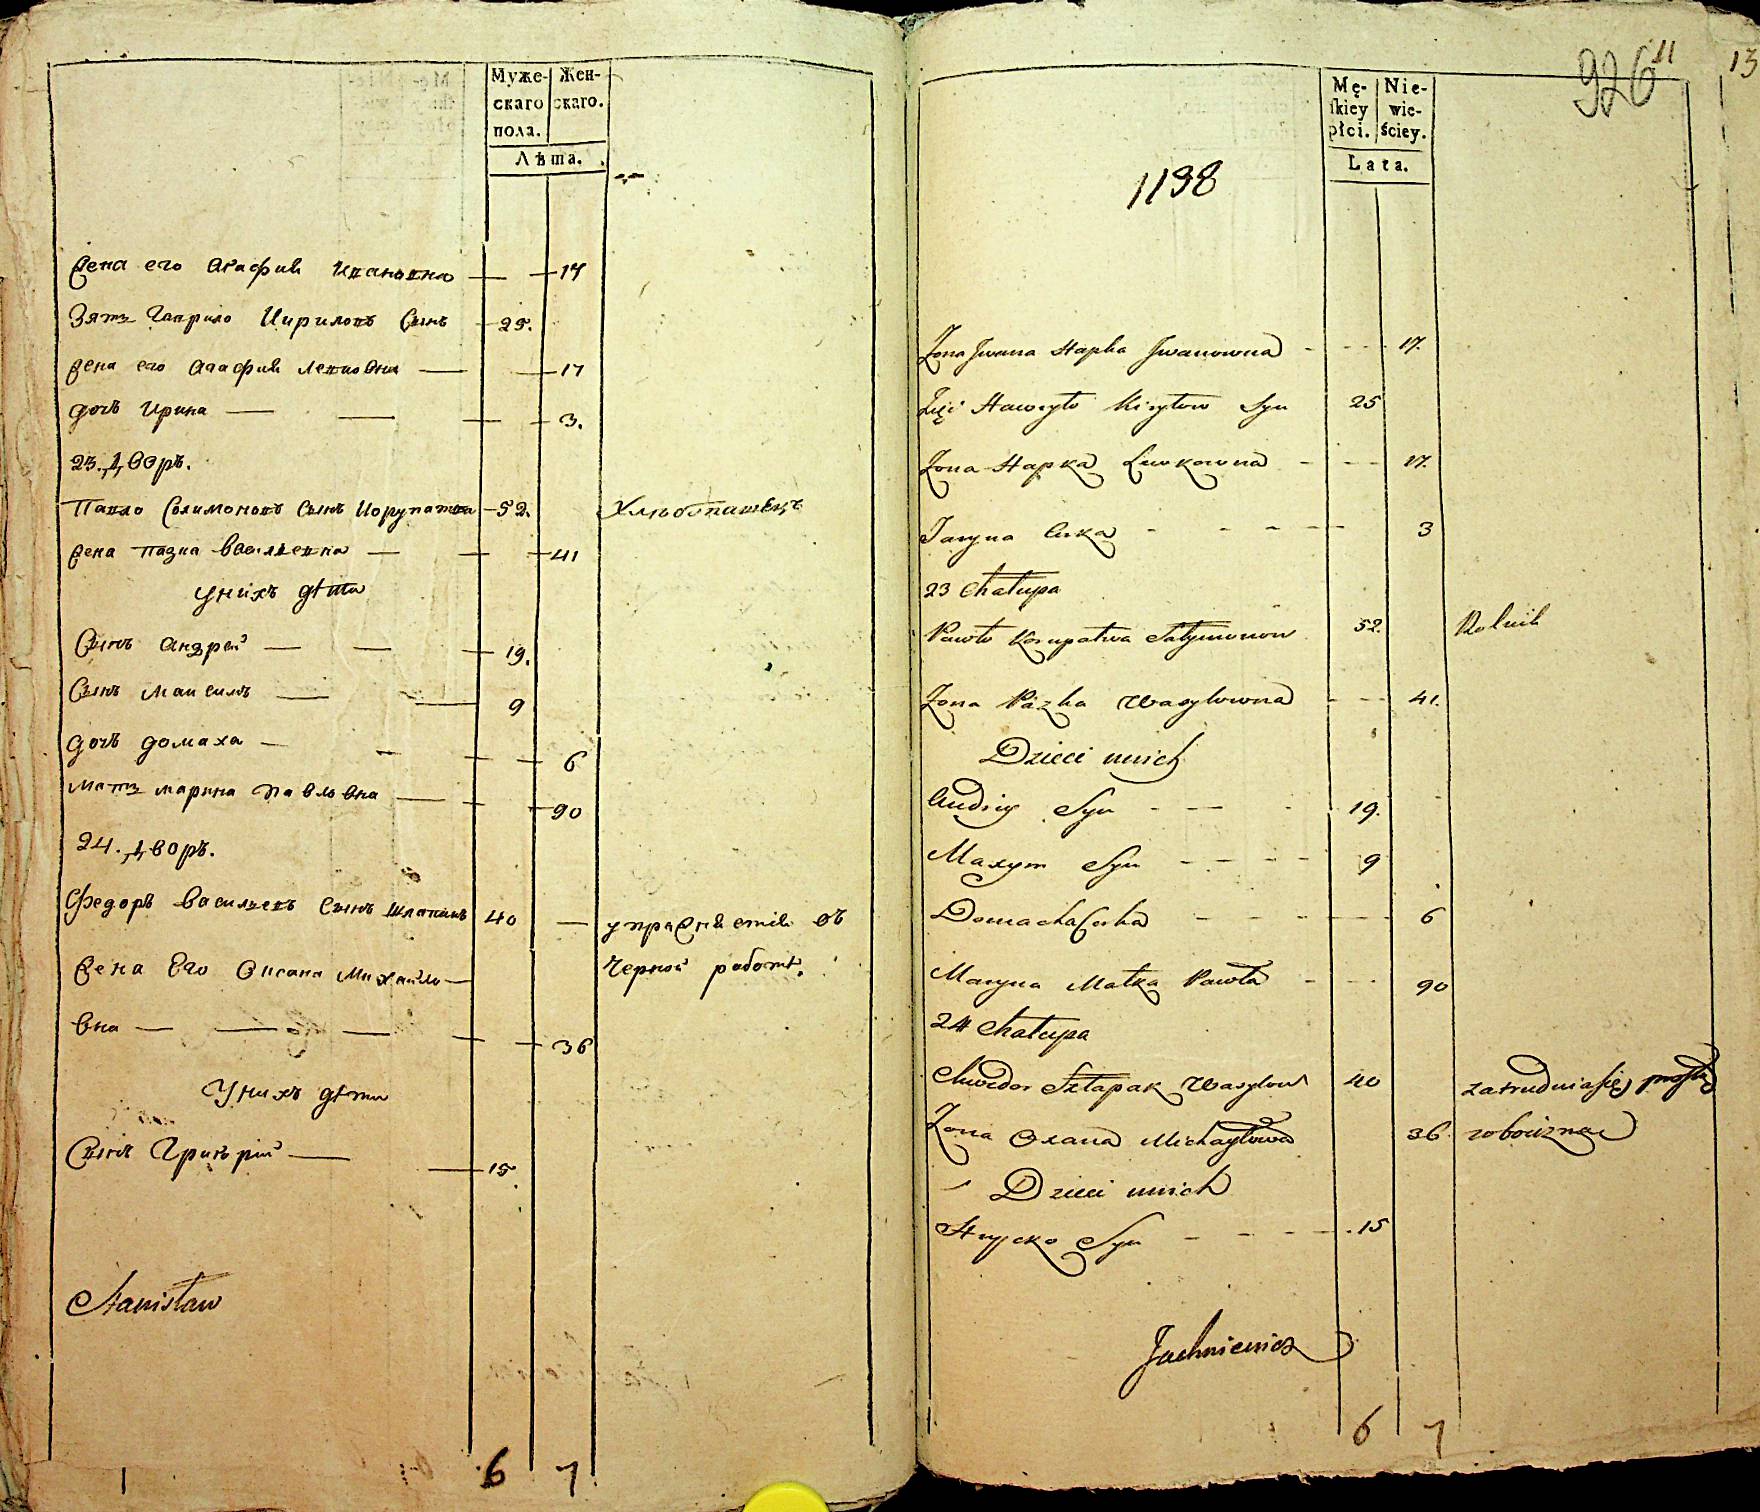 Муже- Жен-
скаго скаго.
пола.
Лѣта.
Жена его Агафия Ивановна 17
Зять Гаврило Кириловъ Сынъ 25.
Жена его Агафия Левковна 17
дочь Ирина 3.
23. Дворъ.
Павло Солимоновъ Сынъ 52. Хлѣбопашецъ
Жена Пазка Васильевна 41
У нихъ дѣти
Сынъ Андрей 19.
Сынъ Максимъ 9
дочь домаха 6
мать марина Павловна 90
24. Дворъ.
Федоръ Васильевъ Сынъ Шлапакъ 40 упражняется въ
Жена Его Оксана Михайло- черной работѣ.
вна 36
У нихъ дѣти
Сынъ Григорій 15.
Stanisław
6 7
926 11 13
Mę- Nie-
ſkiey wie-
płci. ściey.
Lata.
1198
Żona Jwana Hapka Jwanowna 17.
Zięć Hawryło Kiryłow Syn 25
Żona Hapka Lewkowna 17.
Jaryna Curka 3
23 Chałupa
Pawło Korupatwa Sołymonow 52. Rolnik
Żona Pazka Wasylowna 41.
Dzieci unich
Andriy Syn 19.
Maxym Syn 9
Domacha Curka 6
Maryna Matka Pawła 90
24 Chałupa
Chwedor Szłapak Wasylow 40 zatrudnia się prostą
Żona Oxana Michayłowa 36. robocizną
Dzieci unich
Hryćko Syn 15
Juchniewicz
6 7